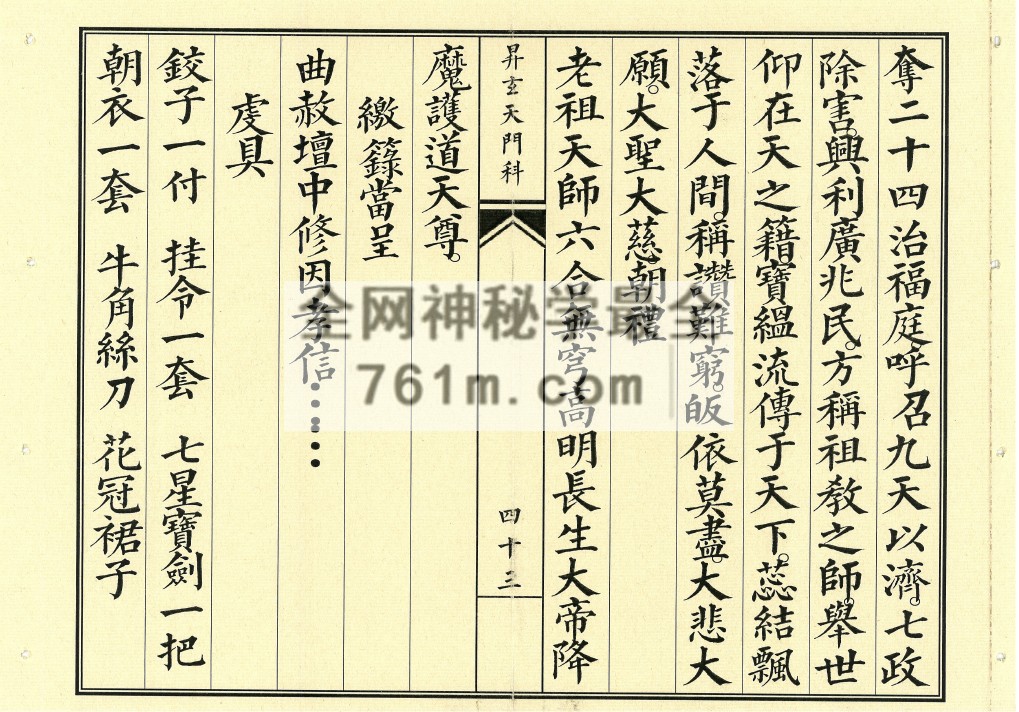 奪二十四治福庭呼召九天以濟。七政
除害。興利廣兆民。方稱祖教之師。舉世
仰在天之籍。寶緼流傳于天下。蕊結飄
落于人間。稱讚難窮。皈依莫盡。大悲大
願。大聖大慈。朝禮
老祖天師六合無穹高明長生大帝降
昇玄天門科
四十三
魔護道天尊。
繳籙當呈
曲赦壇中修因孝信……
虔具
鉸子一付 挂令一套 七星寶劍一把
朝衣一套 牛角絲刀 花冠裙子
全网神秘学最全
761m.com